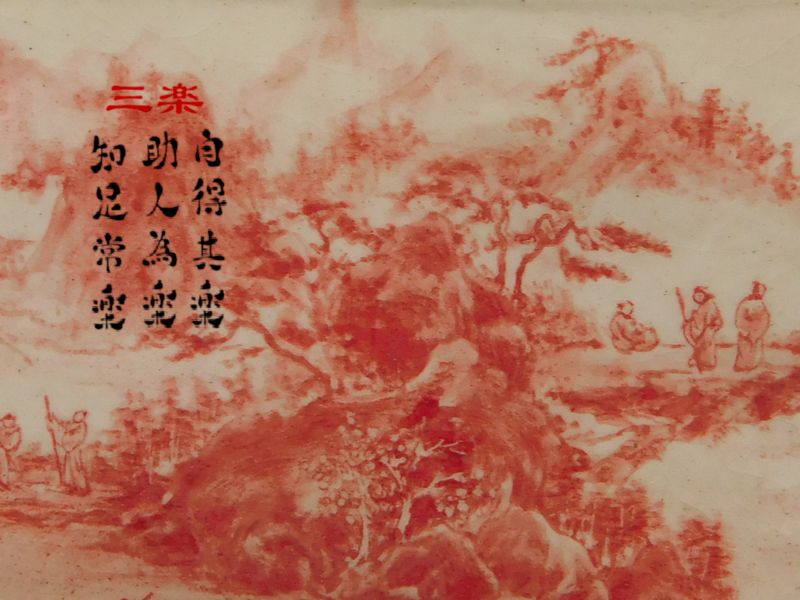 三楽
自得其楽
助人為楽
知足常楽